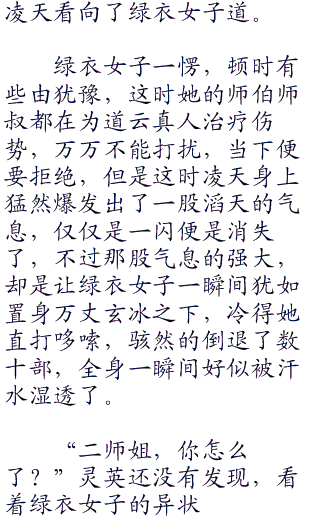 凌天看向了绿衣女子道。
绿衣女子一愣，顿时有
些由犹豫，这时她的师伯师
叔都在为道云真人治疗伤
势，万万不能打扰，当下便
要拒绝，但是这时凌天身上
猛然爆发出了一股滔天的气
息，仅仅是一闪便是消失
了，不过那股气息的强大，
却是让绿衣女子一瞬间犹如
置身万丈玄冰之下，冷得她
直打哆嗦，骇然的倒退了数
十部，全身一瞬间好似被汗
水湿透了。
“二师姐，你怎么
了？”灵英还没有发现，看
着绿衣女子的异状